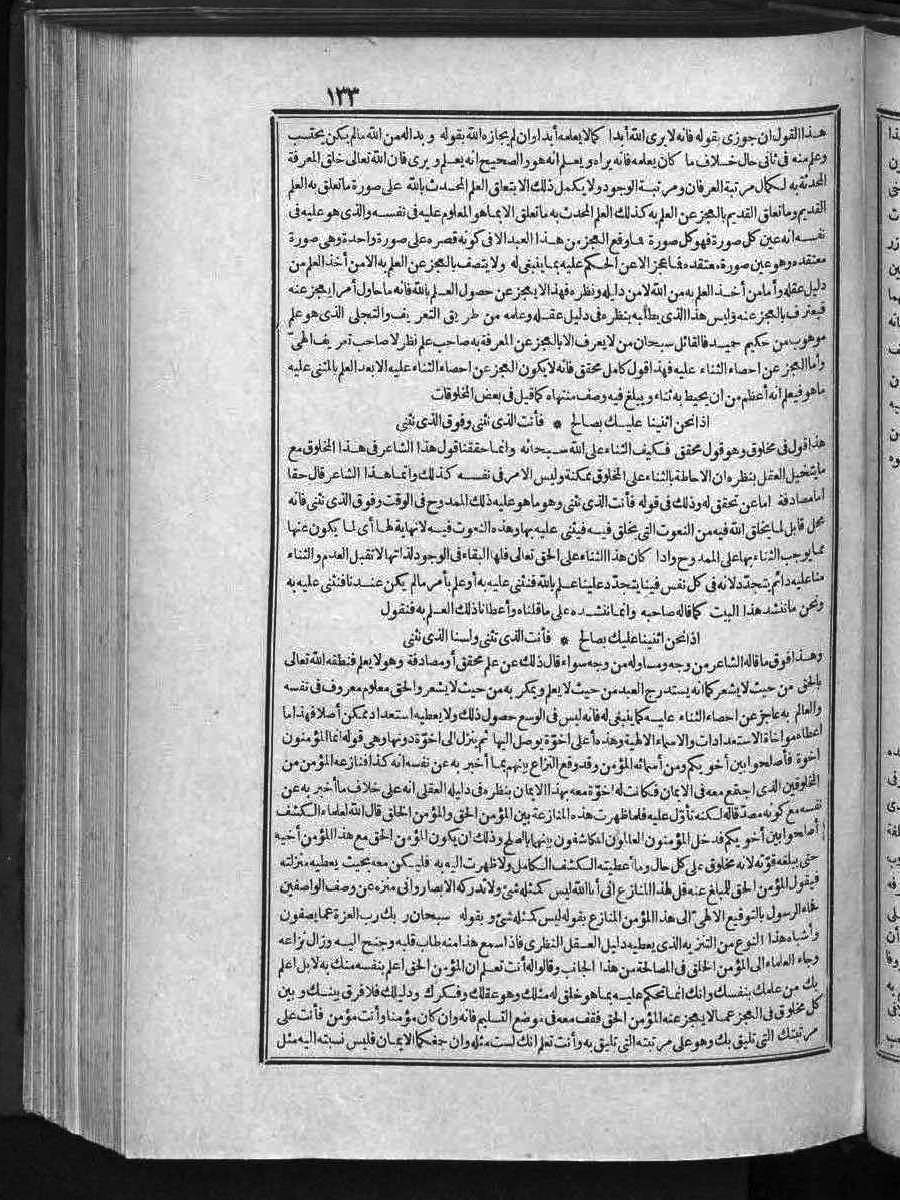 ١٣٣
هذا القول ان جوزى بقوله فانه لا يرى الله أبدا كما لا يعلمه أبدا وان لم يجازه الله بقوله وبدا له من الله ما لم يكن يحتسب
وعلم منه فى ثانى حال خلاف ما كان يعلمه فانه يراه ويعلم انه هو والصحيح انه يعلم ويرى فان الله تعالى خلق المعرفة
المحدثة به لكمال مرتبة العرفان ومرتبة الوجود ولا يكمل ذلك الا بتعلق العلم المحدث بالله على صورة ما تعلق به العلم
القديم وما تعلق القديم بالعجز عن العلم به كذلك العلم المحدث به ما تعلق الا بما هو المعلوم عليه فى نفسه والذى هو عليه فى
نفسه انه عين كل صورة فهو كل صورة فما وقع العجز من هذا العبد الا فى كونه قصره على صورة واحدة وهى صورة
معتقده وهو عين صورة معتقده فما عجز الا عن الحكم عليه بما ينبغى له ولا يتصف بالعجز عن العلم به الا من أخذ العلم من
دليل عقله وأما من أخذ العلم به من الله لا من دليله ونظره فهذا لا يعجز عن حصول العلم بالله فانه ما حاول أمرا يعجز عنه
فيعترف بالعجز عنه وليس هذا الذى يطلبه بنظره فى دليل عقله وعلمه من طريق التعريف والتجلى الذى هو علم
موهوب من حكيم حميد فالقائل سبحان من لا يعرف الا بالعجز عن المعرفة به صاحب علم نظر لا صاحب تعريف الهىّ
وأما العجز عن احصاء الثناء عليه فهذا قول كامل محقق فانه لا يكون العجز عن احصاء الثناء عليه الا بعد العلم بالمثنى عليه
ما هو فيعلم انه أعظم من ان يحيط به ثناء ويبلغ فيه وصف منتهاه كما قيل فى بعض المخلوقات
اذا نحن اثنينا عليك بصالح * فأنت الذى نثنى وفوق الذى نثنى
هذا قول فى مخلوق وهو قول محقق فكيف الثناء على الله سبحانه وانما حققنا قول هذا الشاعر فى هذا المخلوق مع
ما يتخيل العقل بنظره ان الاحاطة بالثناء على المخلوق ممكنة وليس الامر فى نفسه كذلك وانما هذا الشاعر قال حقا
اما مصادفة اما عن تحقق له وذلك فى قوله فأنت الذى نثنى وهو ما هو عليه ذلك الممدوح فى الوقت وفوق الذى نثنى فانه
محل قابل لما يخلق الله فيه من النعوت التى يخلق فيه فيثنى عليه بها وهذه النعوت فيه لا نهاية لها أى لما يكون عنها
مما يوجب الثناء بها على الممدوح واذا كان هذا الثناء على الحق تعالى فلها البقاء فى الوجود لذاتها لا تقبل العدم والثناء
منا عليه دائم يتجدد لانه فى كل نفس فينا يتجدد علينا علم بالله فنثنى عليه به أو علم بأمر ما لم يكن عندنا فنثنى عليه به
ونحن ما ننشد هذا البيت كما قاله صاحبه وانما ننشده على ما قلناه وأعطانا ذلك العلم به فنقول
اذا نحن اثنينا عليك بصالح * فأنت الذى نثنى ولسنا الذى نثنى
وهذا فوق ما قاله الشاعر من وجه ومساو له من وجه سواء قال ذلك عن علم محقق أو مصادفة وهو لا يعلم فنطقه الله تعالى
بالحق من حيث لا يشعر كما انه يستدرج العبد من حيث لا يعلم ويمكر به من حيث لا يشعر والحق معلوم معروف فى نفسه
والعالم به عاجز عن احصاء الثناء عليه كما ينبغى له فانه ليس فى الوسع حصول ذلك ولا يعطيه استعداد ممكن أصلا فهذا ما
أعطاه مواخاة الاستعدادات والاسماء الالهية وهذه أعلى اخوّة يوصل اليها ثم ينزل الى اخوّة دونها وهى قوله انما المؤمنون
اخوة فأصلحوا بين أخويكم ومن أسمائه المؤمن وقد وقع النزاع بينهم بما أخبر به عن نفسه انه كذا فنازعه المؤمن من
المخلوقين الذى اجتمع معه فى الايمان فكانت له اخوّة معه بهذا الايمان بنظره فى دليله العقلى انه على خلاف ما أخبر به عن
نفسه مع كونه مصدّقا له لكنه تأوّل عليه فلما ظهرت هذه المنازعة بين المؤمن الحق والمؤمن الخلق قال الله لعلماء الكشف
أصلحوا بين أخويكم فدخل المؤمنون العالمون المكاشفون بينهما بالصلح وذلك ان يكون المؤمن الحق مع هذا المؤمن أخيه
حتى يبلغه قوّته لانه مخلوق على كل حال وما أعطيته الكشف الكامل ولا ظهرت اليه به فليكن معه بحيث يعطيه منزلته
فيقول المؤمن الحق للمبلغ عنه قل لهذا المنازع انى أنا الله ليس كمثله شئ ولا تدركه الابصار وانى منزه عن وصف الواصفين
فجاء الرسول بالتوقيع الالهىّ الى هذا المؤمن المنازع بقوله ليس كمثله شئ وبقوله سبحان ربك رب العزة عما يصفون
وأشباه هذا النوع من التنزيه الذى يعطيه دليل العقل النظرى فاذا سمع هذا منه طاب قلبه وجنح اليه وزال نزاعه
وجاء العلماء الى المؤمن الخلق فى المصالحة من هذا الجانب وقالوا له أنت تعلم ان المؤمن الحق اعلم بنفسه منك به لا بل اعلم
بك من علمك بنفسك وانك انما تحكم عليه بما هو خلق له مثلك وهو عقلك وفكرك ودليلك فلا فرق بينك وبين
كل مخلوق فى العجز عما لا يعجز عنه المؤمن الحق فقف معه فى موضع التسليم فانه وان كان مؤمنا وأنت مؤمن فأنت على
مرتبتك التى تليق بك وهو على مرتبته التى تليق به وأنت تعلم انك لست مثله وان جمعكما الايمان فليس نسبته اليه مثل